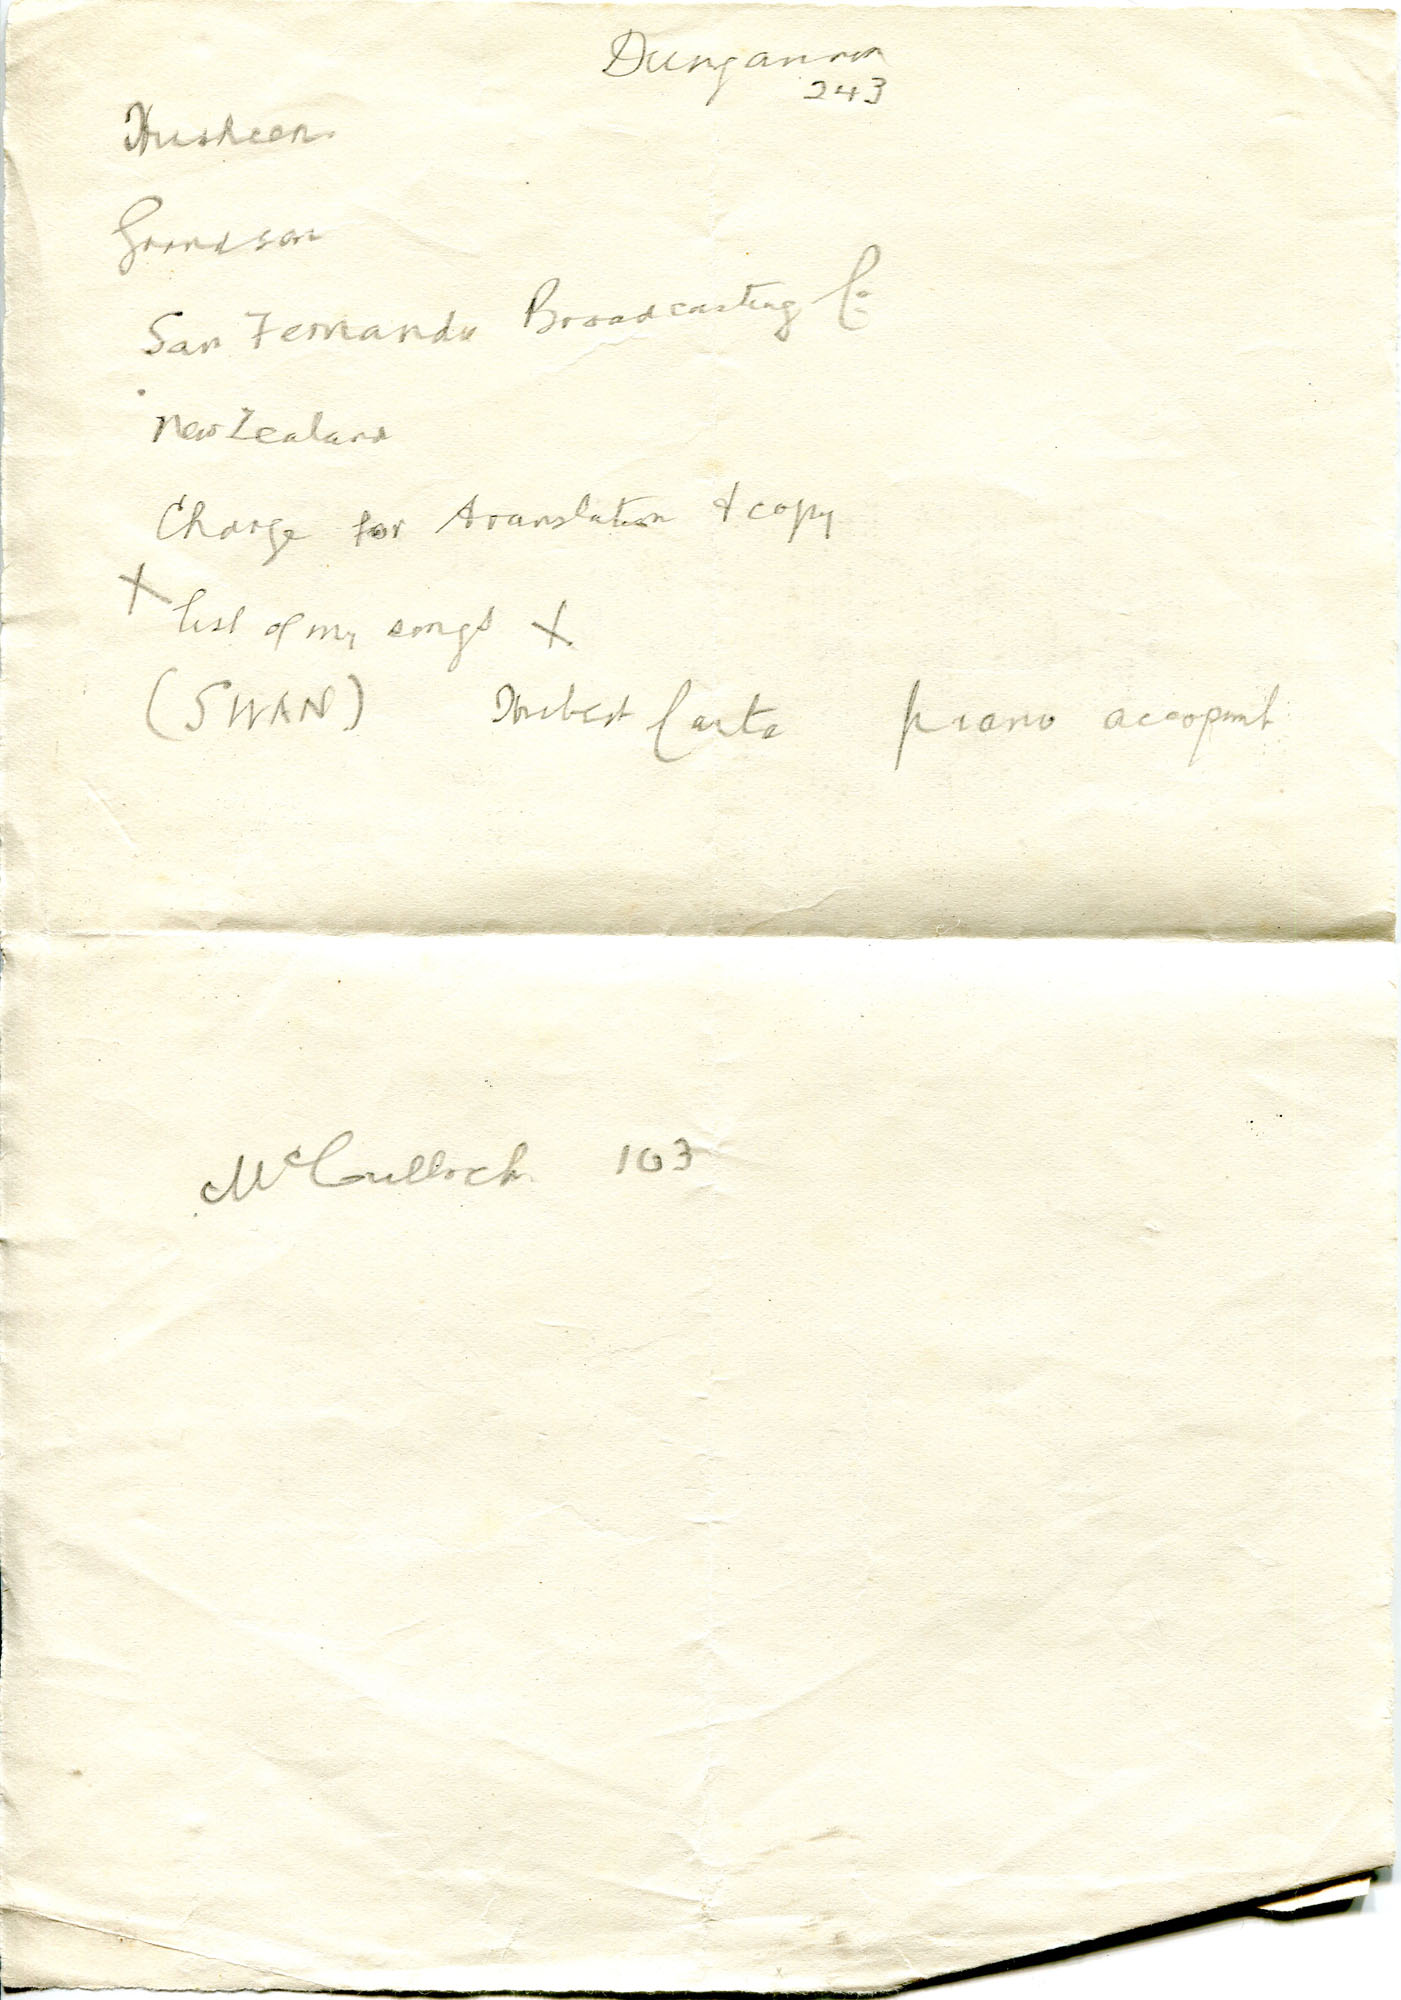 Dungannon
243
Husheen
Grandson
San Fernando Broadcasting Co
New Zealand
Charge for translation & copy
X list of my songs X
(SWAN) Hubert Carta piano accopmt
McCulloch 103